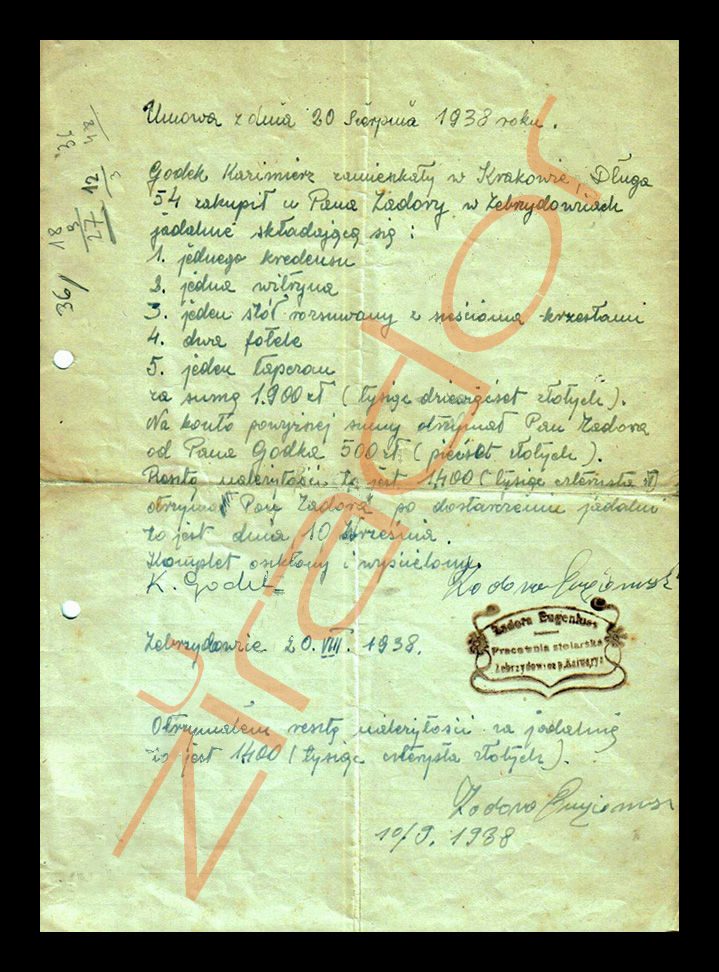 Umowa z dnia 20 Sierpnia 1938 roku.
Godek Kazimierz zamieszkały w Krakowie, Długa
54 zakupił u Pana Zadory w Zebrzydowicach
jadalnię składającą się:
1. jednego kredensu
2. jedna witryna
3. jeden stół rozsuwany z sześcioma krzesłami
4. dwa fotele
5. jeden tapczan
za sumę 1.900 zł (tysiąc dziewięćset złotych).
Na konto powyższej sumy otrzymał Pan Zadora
od Pana Godka 500 zł (pięćset złotych).
Resztę należytości to jest 1400 (tysiąc czterysta zł)
otrzyma Pan Zadora po dostarczeniu jadalni
to jest dnia 10 Września.
Komplet oszklony i wyścielony.
K. Godek Zadora Eugeniusz
Zadora Eugeniusz
Pracownia stolarska
Zebrzydowice p. Kalwarya
Zebrzydowice 20. VIII. 1938.
Otrzymałem resztę należytości za jadalnię
to jest 1400 (tysiąc czterysta złotych).
Zadora Eugeniusz
10/9. 1938
36/
18
27
12
24
żirador